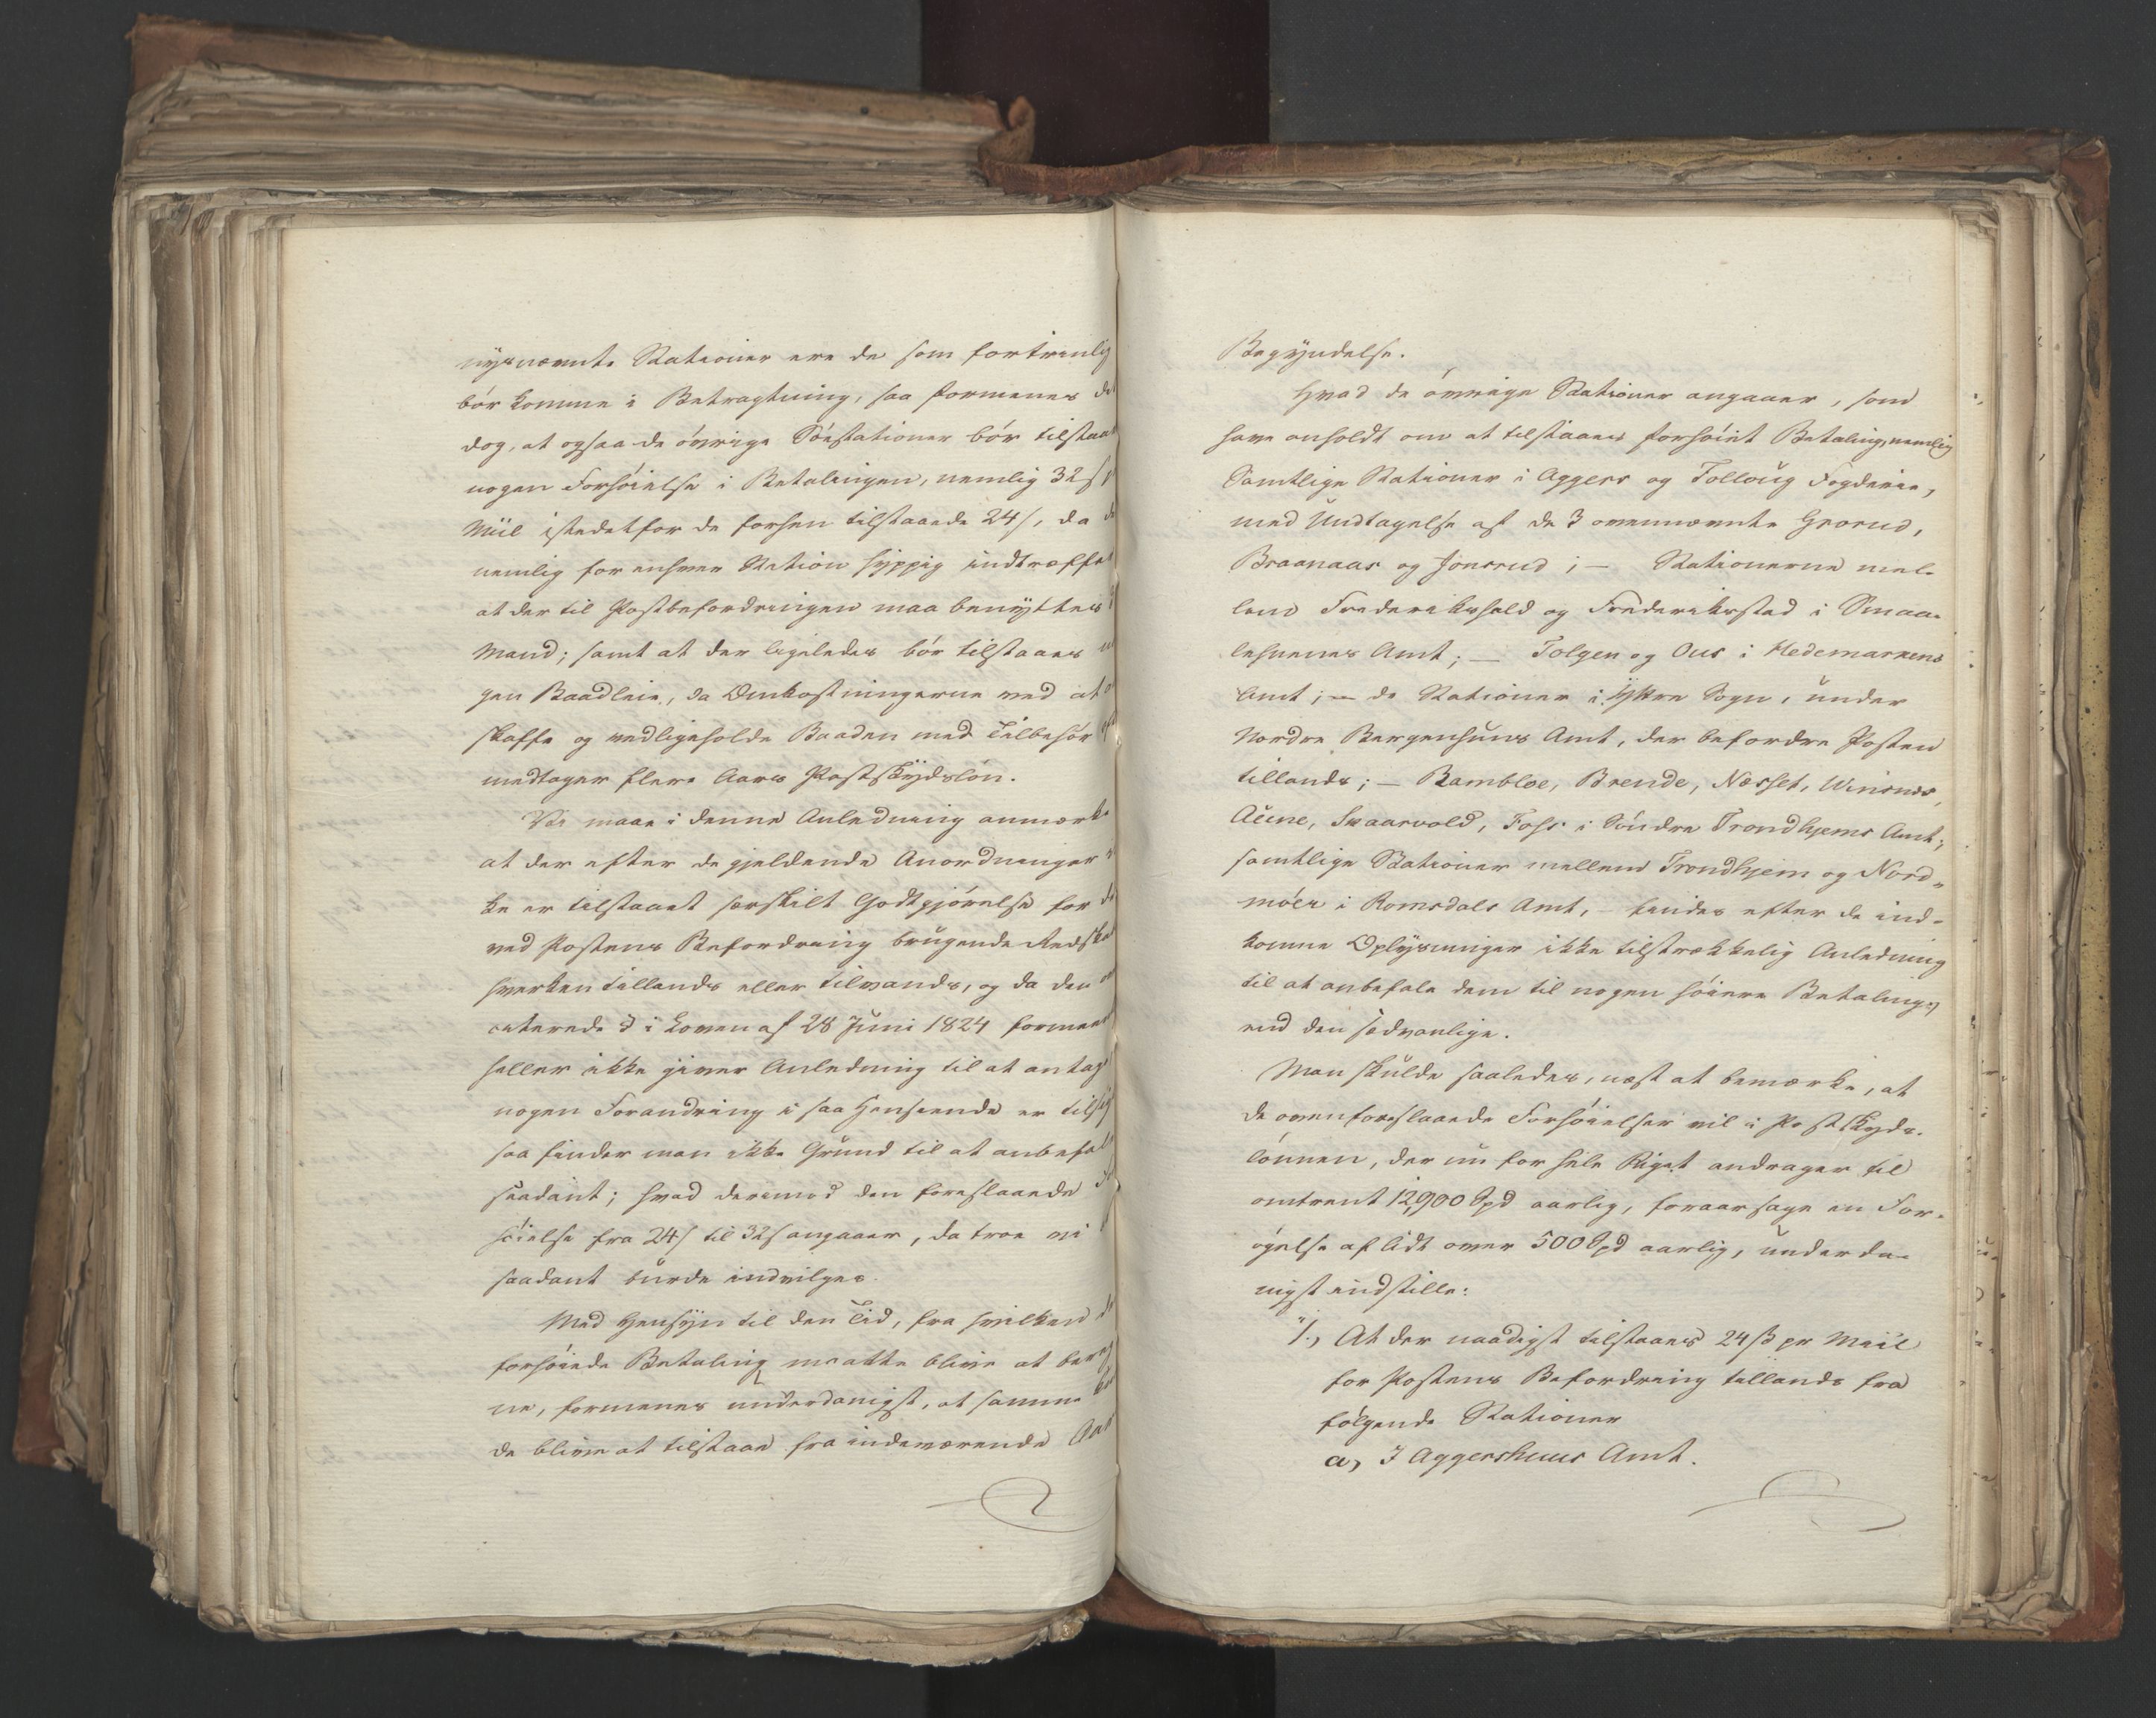 nysnævnte Stationer ere de som fortrinlig
bör komme i Betragtning, saa formenes
dog, at ogsaa de övrige Söestationer bör tilstaaes
nogen Forhöielse i Betalingen, nemlig 32 s
Miil istedetfor de forhen tilstaaede 24 s, da
nemlig for enhver Station hyppig indtræffer
at der til Postbefordringen maa benyttes 3
Mand; samt at der ligeledes bör tilstaaes
gen Baadleie, da Omkostningerne ved at
skaffe og vedligeholde Baaden med Tilbehör
medtager flere Aars Postskydslön.
Vi maae i denne Anledning anmærke
at der efter de gjeldende Anordninger
ke er tilstaaet særskilt Godtgjörelse for de
ved Postens Befordring brugende Redskab
hverken tillands eller tilvands, og da den
citerede § i Loven af 28 Juni 1824 formeent
heller ikke giver Anledning til at antage
nogen Forandring i saa Henseende er
saa finder man ikke Grund til at anbefale
saadant; hvad derimod den foreslaaede
höielse fra 24 s til 32 s angaaer, da troe vi
saadant burde indvilges.
Med Hensyn til den Tid, fra hvilken
forhöiede Betaling maatte blive at bereg
ne, formenes underdanigst, at samme
de blive at tilstaae fra indeværende Aars
Begyndelse.
Hvad de övrige Stationer angaaer, som
have anholdt om at tilstaaes forhöiet Betaling, nemlig
Samtlige Stationer i Aggers og Folloug Fogderie,
med Undtagelse af de 3 ovennævnte Grorud,
Braanaas og Jonsrud; — Stationerne mel-
lem Frederikshald og Frederikstad i Smaa-
lehnenes Amt; — Tolgen og Ous i Hedemarkens
Amt; — de Stationer i Yttre Sogn, under
Nordre Bergenhuus Amt, der befordre Posten
tillands; — Rambloe, Brende, Næsset, Winsnes,
Aune, Svaarvold, Foss i Söndre Trondhjems Amt;
samtlige Stationer mellem Trondhjem og Nord-
möer i Romsdals Amt, — findes efter de ind-
komne Oplysninger ikke tilstrækkelig Anledning
til at anbefale dem til nogen höiere Betaling,
end den sædvanlige.
Man skulde saaledes, næst at bemærke, at
de ovenforeslaaede Forhöielser vil i Postskyds-
lönnen, der nu for hele Riget andrager til
omtrent 12,900 Spd aarlig, foraarsage en For-
ögelse af lidt over 500 Spd aarlig, underda-
nigst indstille:
1., At der naadigst tilstaaes 24 ß pr Miil
for Postens Befordring tillands fra
fölgende Stationer
a, I Aggershuus Amt.